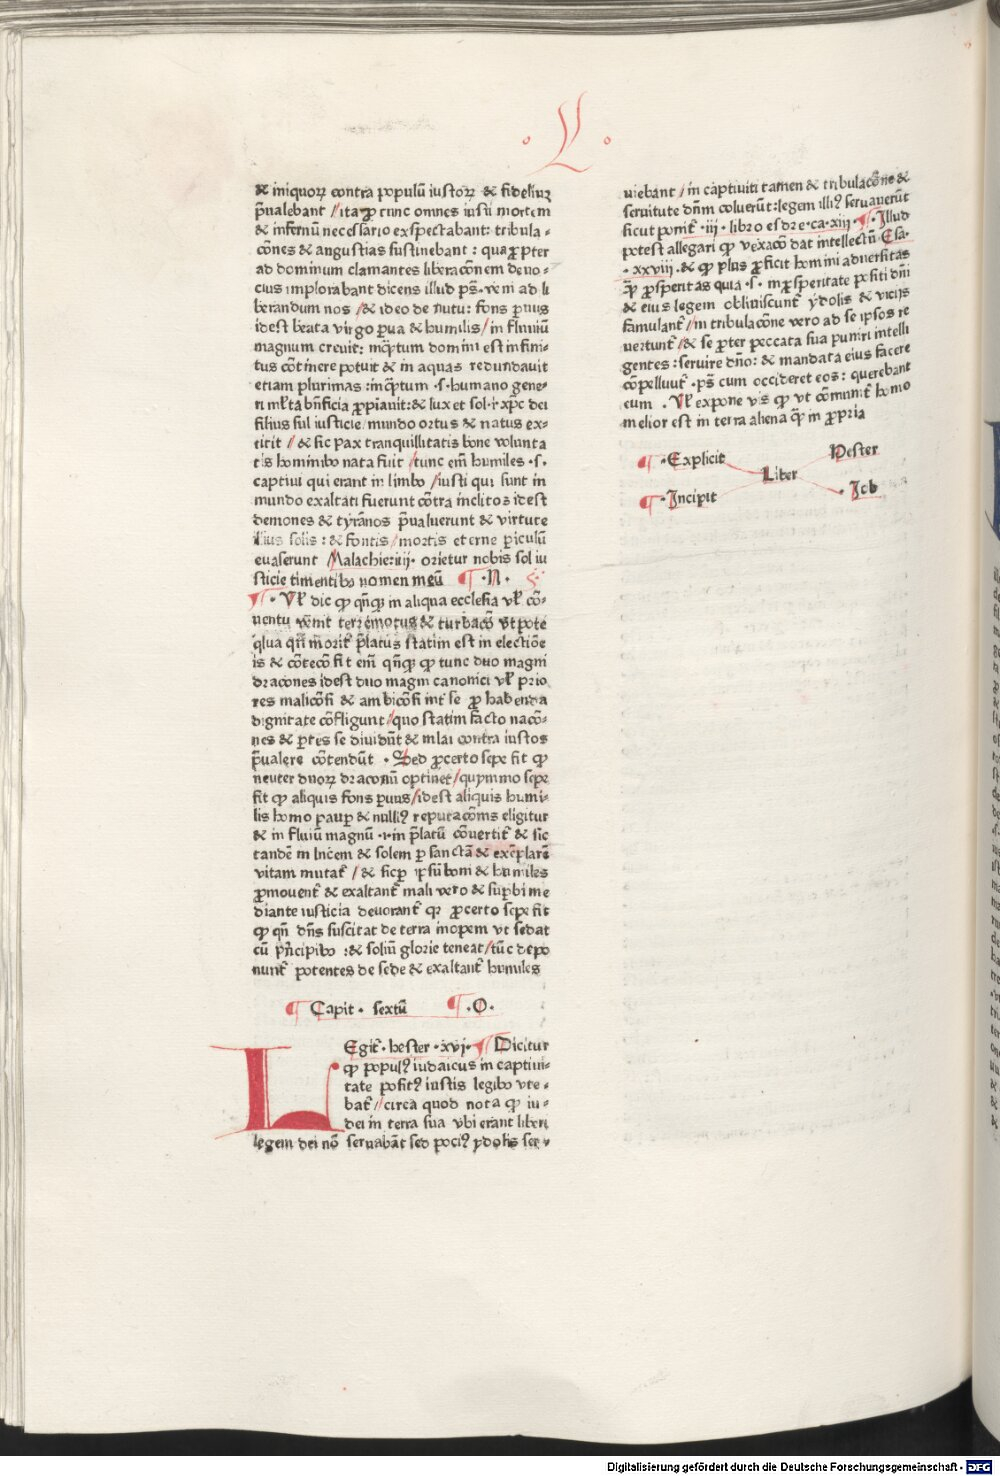 L
& iniquoꝝ contra populū iustoꝝ & fideliuꝫ
p̄ualebant / ita ꝙ tunc omnes iusti mortem
& infernū necessario exspectabant: tribula-
cōnes & angustias sustinebant : qua ꝓpter
ad dominum clamantes liberacōnem deuo-
cius implorabant dicens illud ps̄. veni ad li
berandum nos / & ideo de nutu: fons ꝑuus
idest beata virgo ꝑua & humilis / in fluuiū
magnum creuit: inq̄ptum dominī est infini-
tus cōtinere potuit & in aquas redundauit
etiam plurimas : inq̄ptum .s. humano gene-
ri ml̄ta bn̄ficia ꝓpianit: & lux et sol .i. xp̄c dei
filius sul iusticie / mundo ortus & natus ex-
titit / & sic pax tranquillitatis bone volunta
tis hominibꝰ nata fuit / tunc em̄ humiles .s.
captiui qui erant in limbo / iusti qui sunt in
mundo exaltati fuerunt cōtra inclitos idest
demones & tyrānos p̄ualuerunt & virtute
illius solis : & fontis / mortis eterne ꝑiculū
euaserunt Malachie: iiij. orietur nobis sol iu
sticie timentibꝰ nomen meū ¶ .N.
¶ . Vl̄ dic ꝙ qn̄qꝫ in aliqua ecclesia vl̄ cō-
uentu venit terremotus & turbacō vt pote
qn̄ morit̄ p̄latus statim est in electiōe
is & cōtecō fit em̄ qn̄qꝫ ꝙ tunc duo magni
dracones idest duo magni canonici vl̄ prio
res malicōsi & ambicōsi int̄ se ꝓ habenda
dignitate cōfligunt / quo statim facto nacō-
nes & ꝑtes se diuidūt & mlai contra iustos
p̄ualere cōtendūt . Sed ꝓcerto sepe fit ꝙ
neuter duoꝝ draconū optinet / quymmo sepe
fit ꝙ aliquis fons ꝑuus / idest aliquis humi-
lis homo pauꝑ & nulliꝰ reputacōnis eligitur
& in fluiū magnū .i. in p̄latū cōuertit̄ & sic
tandē in lucem & solem ꝑ sanctā & exēplarē
vitam mutat̄ / & sic ꝑ ip̄sū boni & humiles
ꝓmouent̄ & exaltant̄ mali vero & suꝑbi me
diante iusticia deuorant̄ qꝛ ꝓcerto sepe fit
ꝙ qn̄ dn̄s suscitat de terra inopem vt sedat
cū p̄ncipibꝰ : & soliū glorie teneat / tūc depo
nunt̄ potentes de sede & exaltant̄ humiles
¶ Capit . sextū ¶ .O.
LEgit̄ . hester . xvj . ¶ Dicitur
ꝙ populꝰ iudaicus in captiui-
tate positꝰ iustis legibꝰ vte-
bat̄ / circa quod nota ꝙ iu-
dei in terra sua vbi erant liberi
legem dei nō seruabāt sed pociꝰ ydolis ser-
uiebant / in captiuiti tamen & tribulacōne &
seruitute dn̄m coluerūt : legem illiꝰ seruauerūt
sicut ponit̄ . iij . libro esdre . ca . xiij ¶ . Illud
potest allegari ꝙ vexacō dat intellectū . Esa .
. xxviij . & ꝙ plus ꝓficit homini aduersitas
q̄ꝫ ꝓsperitas quia .s. in ꝓsperitate positi dn̄i
& eius legem obliuiscunt̄ ydolis & vicijs
famulant̄ / in tribulacōne vero ad se ipsos re
uertunt̄ / & se ꝓpter peccata sua puniri intelli
gentes : seruire dn̄o : & mandata eius facere
cōpelluut̄ . ps̄ cum occideret eos : querebant
eum . Vl̄ expone vis ꝙ vt cōmunit̄ homo
melior est in terra aliena q̄ꝫ in ꝓpria
¶ . Explicit Liber Hester
¶ . Incipit . Job
Digitalisierung gefördert durch die Deutsche Forschungsgemeinschaft - DFG